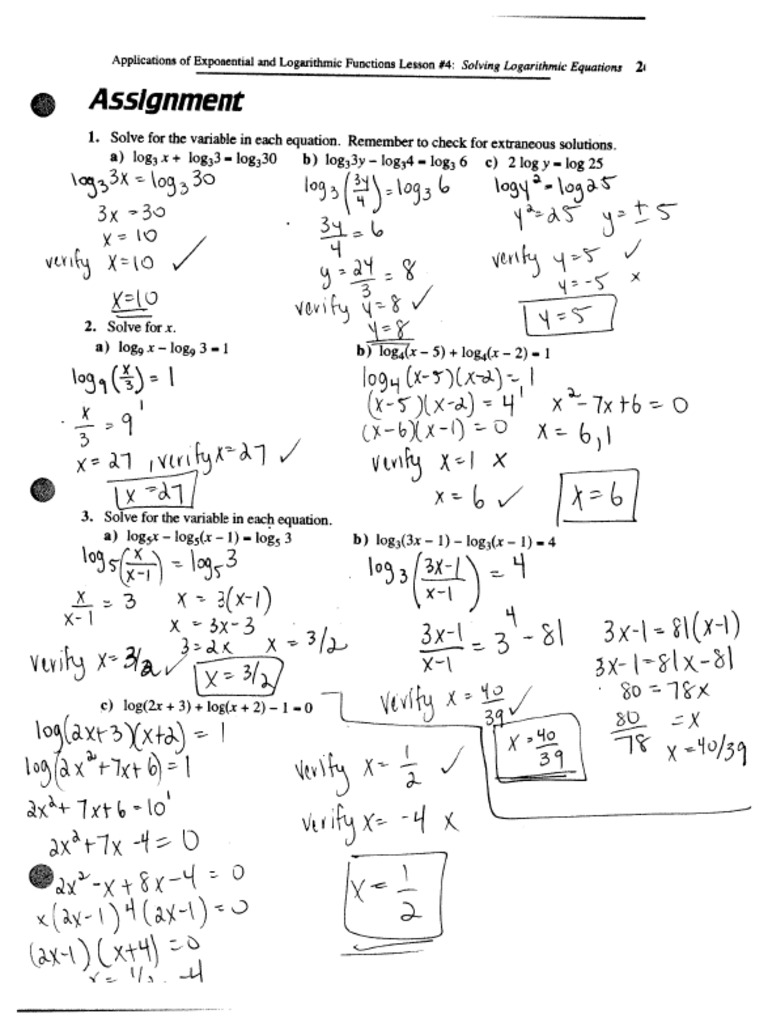 Applications of Exponential and Logarithmic Functions Lesson #4: Solving Logarithmic Equations
Assignment
1. Solve for the variable in each equation. Remember to check for extraneous solutions.
a) log₃ x + log₃3 = log₃30 b) log₃3y – log₃4 = log₃ 6 c) 2 log y = log 25
log₃3x = log₃30
3x = 30
x = 10
verify x=10 ✓
x=10
log₃(3y/4) = log₃6
3y/4 = 6
y = 24/3 = 8
verify y=8 ✓
y=8
logy² = log25
y²=25 y=±5
verify y=5 ✓
y=-5 x
y=5
2. Solve for x.
a) log₉ x – log₉ 3 = 1 b) log₄(x – 5) + log₄(x – 2) = 1
log₉(x/3) = 1
x/3 = 9¹
x = 27, verify x=27 ✓
x=27
log₄(x-5)(x-2) = 1
(x-5)(x-2) = 4¹ x²-7x+6=0
(x-6)(x-1) = 0 x = 6,1
verify x=1 x
x=6 ✓ x=6
3. Solve for the variable in each equation.
a) log₅x – log₅(x – 1) = log₅ 3 b) log₃(3x – 1) – log₃(x – 1) = 4
log₅(x/x-1) = log₅3
x/x-1 = 3 x = 3(x-1)
x = 3x-3
3=2x x = 3/2
verify x=3/2 ✓ x=3/2
log₃(3x-1/x-1) = 4
3x-1/x-1 = 3⁴ - 81
3x-1=81(x-1)
3x-1=81x-81
80=78x
80/78 = x
x=40/39
verify x=40/39 ✓
x=40/39
c) log(2x + 3) + log(x + 2) – 1 = 0
log(2x+3)(x+2) = 1
log(2x²+7x+6)=1
2x²+7x+6=10¹
2x²+7x-4=0
2x²-x+8x-4=0
x(2x-1)4(2x-1)=0
(2x-1)(x+4)=0
-4
verify x=1/2 ✓
verify x=-4 x
x=1/2